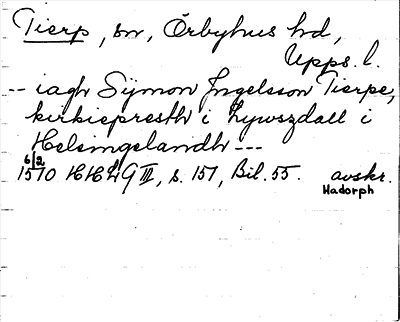 Tierp, sn, Örbyhus hd,
Upps. l.
-- iagh Sÿmon Jngelsson Tierpe,
kirkiepresth i Lywszdall i
Helsingelandh ---
6/2
1510 HHLG III, s. 151, Bil. 55. avskr.
Hadorph